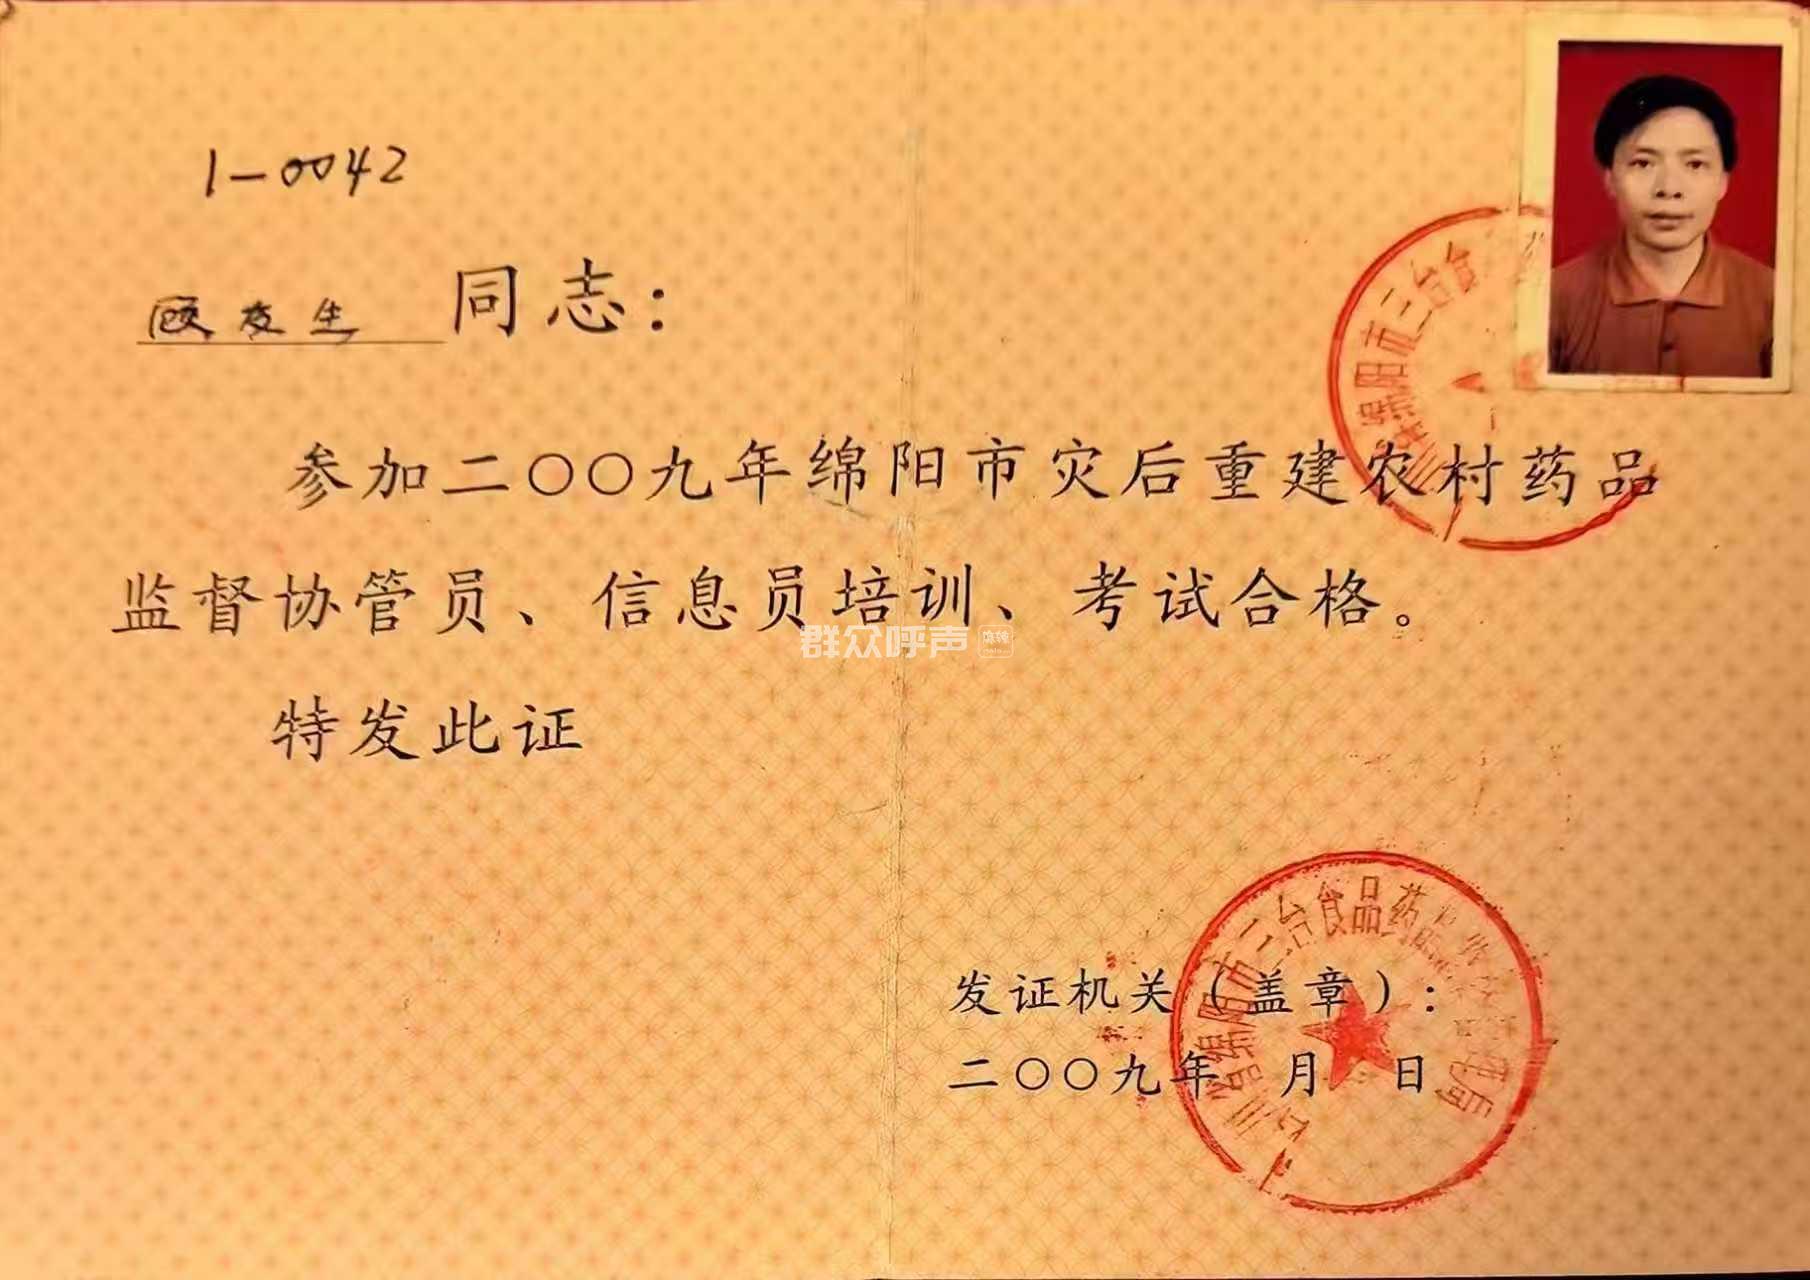 1-0042
顾友生 同志：
参加二〇〇九年绵阳市灾后重建农村药品
监督协管员、信息员培训、考试合格。
群众呼声 麻辣
特发此证
发证机关（盖章）：
二〇〇九年 月 日
绵阳市三台食
绵阳市三台食品药